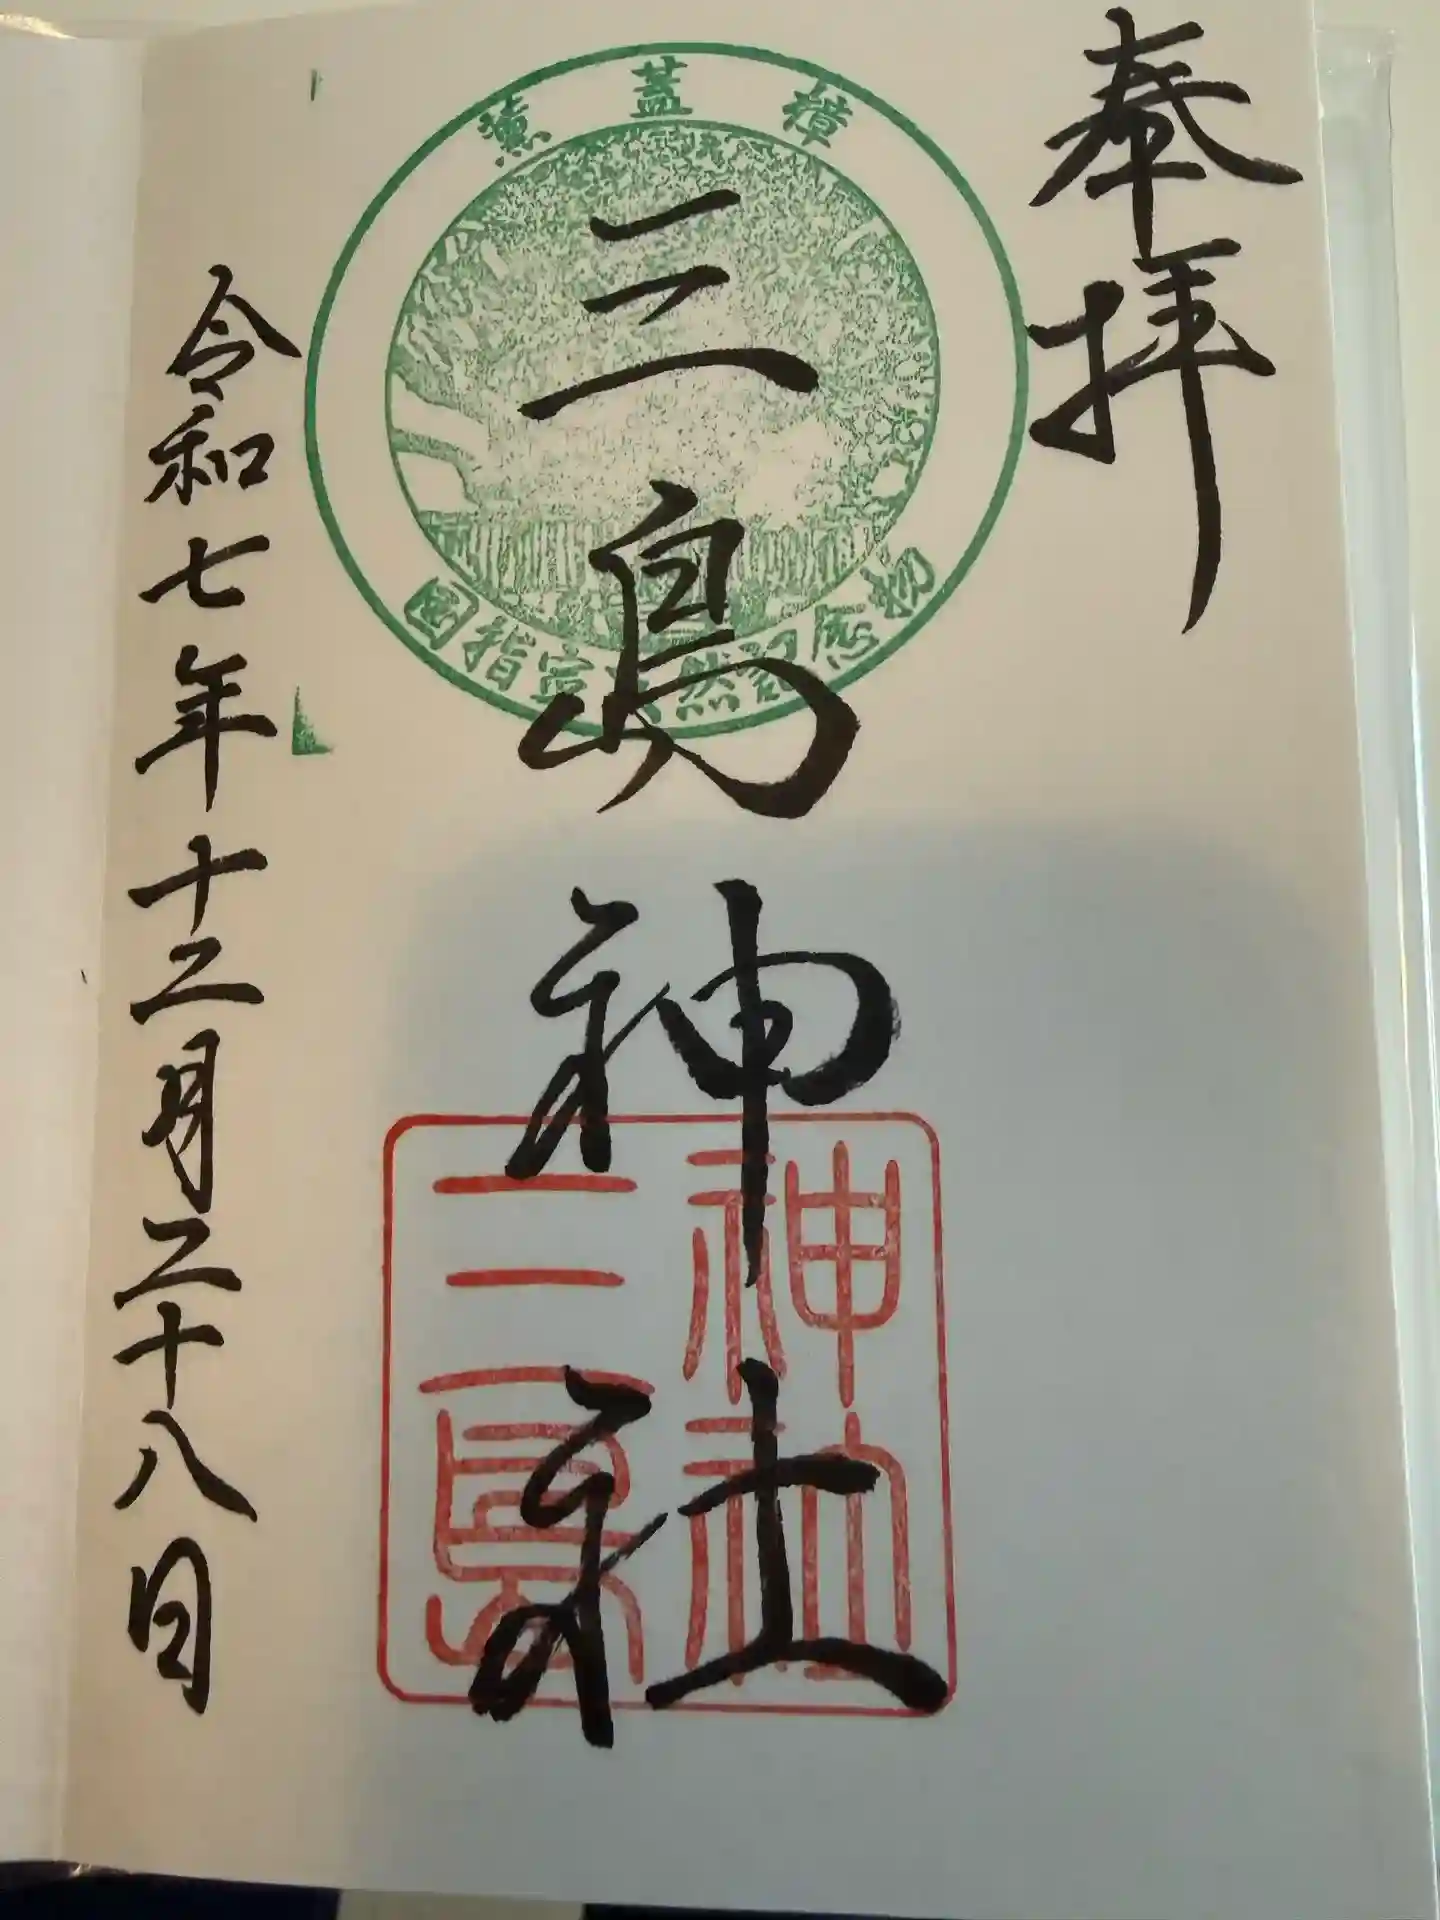 奉拝
薫蓋樟
国指定天然記念物
三島神社
神社
三島
令和七年十二月二十八日